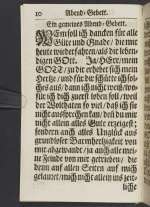 10 Abend-Gebett.
Ein gemeines Abend-Gebett.
WEm soll ich dancken für alle
Güte und Gnade/ die mir
heute wiederfahren/ als dir lebendigen
GOtt. Ja/ HErr/ mein
GOTT/ zu dir erhebet sich mein
Hertze/ und für dir schütte ich solches
aus/ dann ich nicht weiß/ wofür
ich dich zuerst loben soll/ weil
der Wolthaten so viel/ daß ich sie
nicht aussprechen kan/ daß du mir
nicht allein alles Gute erzeiget/
sondern auch alles Unglück aus
grundloser Barmhertzigkeit von
mir abgewandt/ ja auch alle meine
Feinde von mir getrieben/ die
denn auf allen Seiten auf mich
gelauret/ mich nicht allein im zeitliche